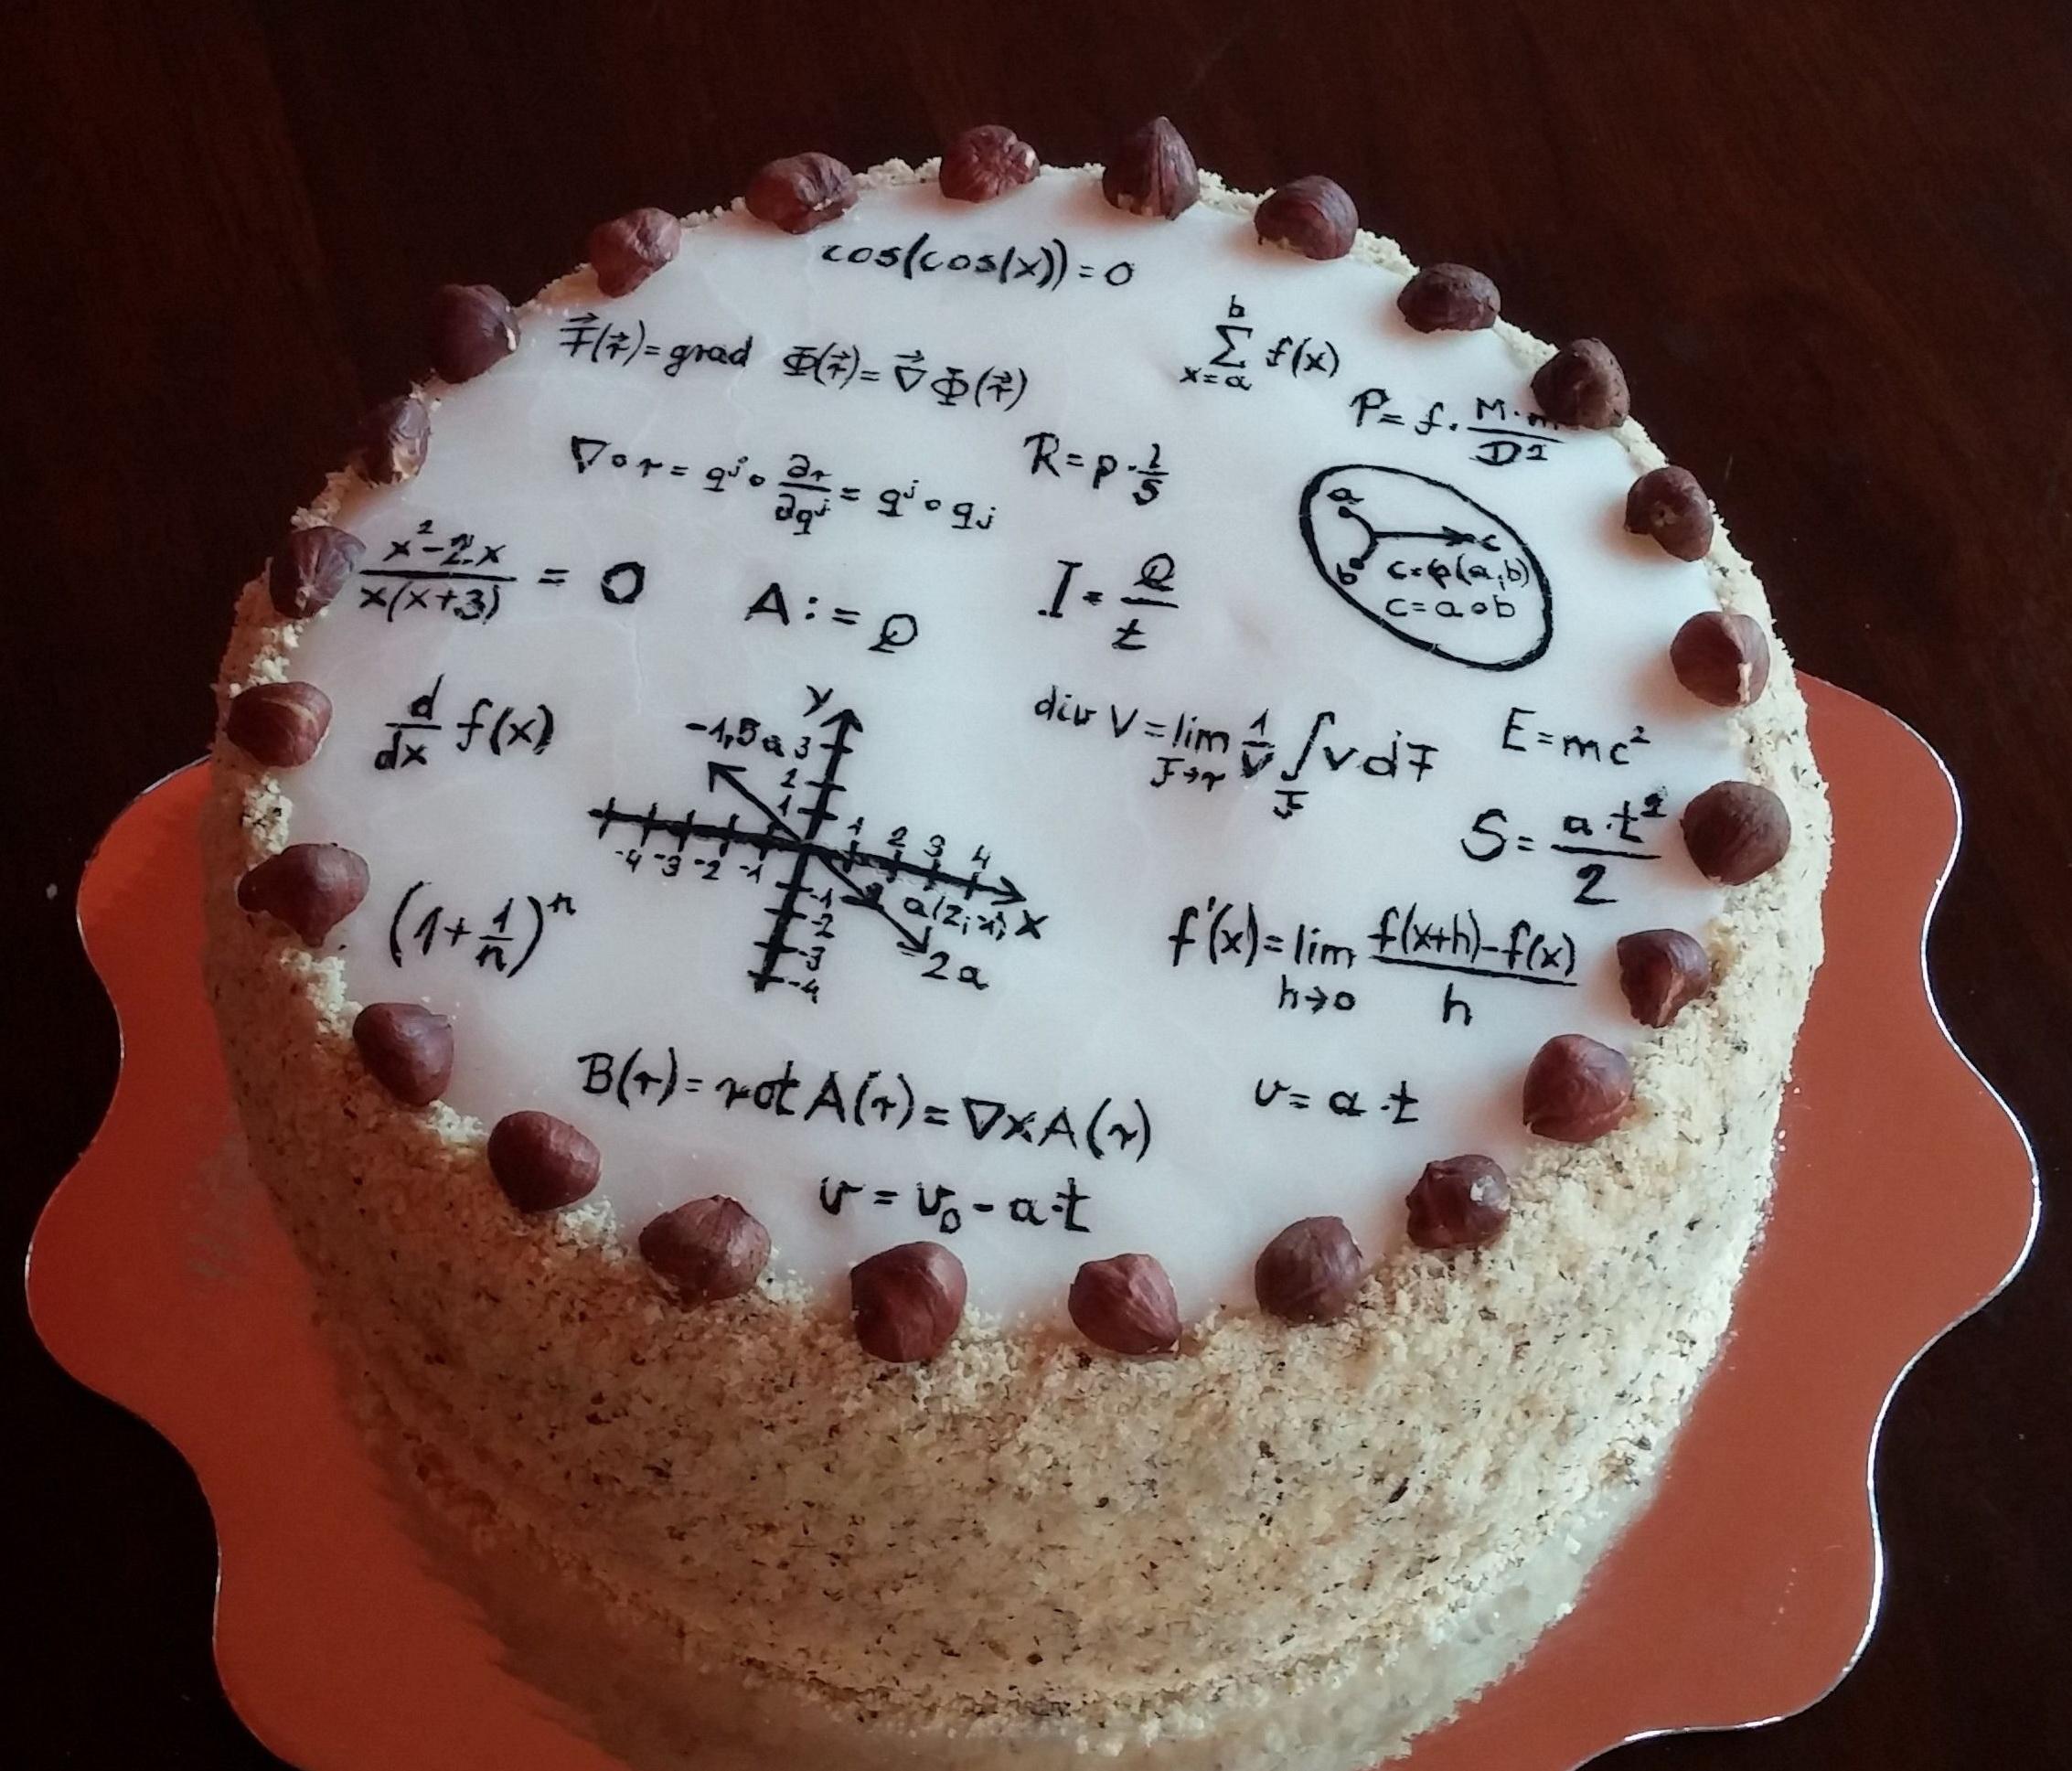 cos(cos(x)) = 0
F⃗(r⃗) = grad Φ(r⃗) = ∇⃗Φ(r⃗)
b
∑ f(x)
x=a
P = f · M·m / D²
∇∘r = q^j ∘ ∂r/∂q^j = q^j ∘ q_j
R = p · 1/S
a
b
c
c=φ(a,b)
c=a∘b
x²-2x / x(x+3) = 0
A := Q
I = Q/t
d/dx f(x)
y
-1,5a
3
2
1
-4 -3 -2 -1
1 2 3 4
x
a(2;-1)
-1
-2
-3
-4
2a
div V = lim 1/V ∫ v dF
F→r F
E = mc²
S = a·t² / 2
(1 + 1/n)^n
f'(x) = lim f(x+h)-f(x) / h
h→0
B(r) = rot A(r) = ∇×A(r)
v = a·t
v = v₀ - a·t